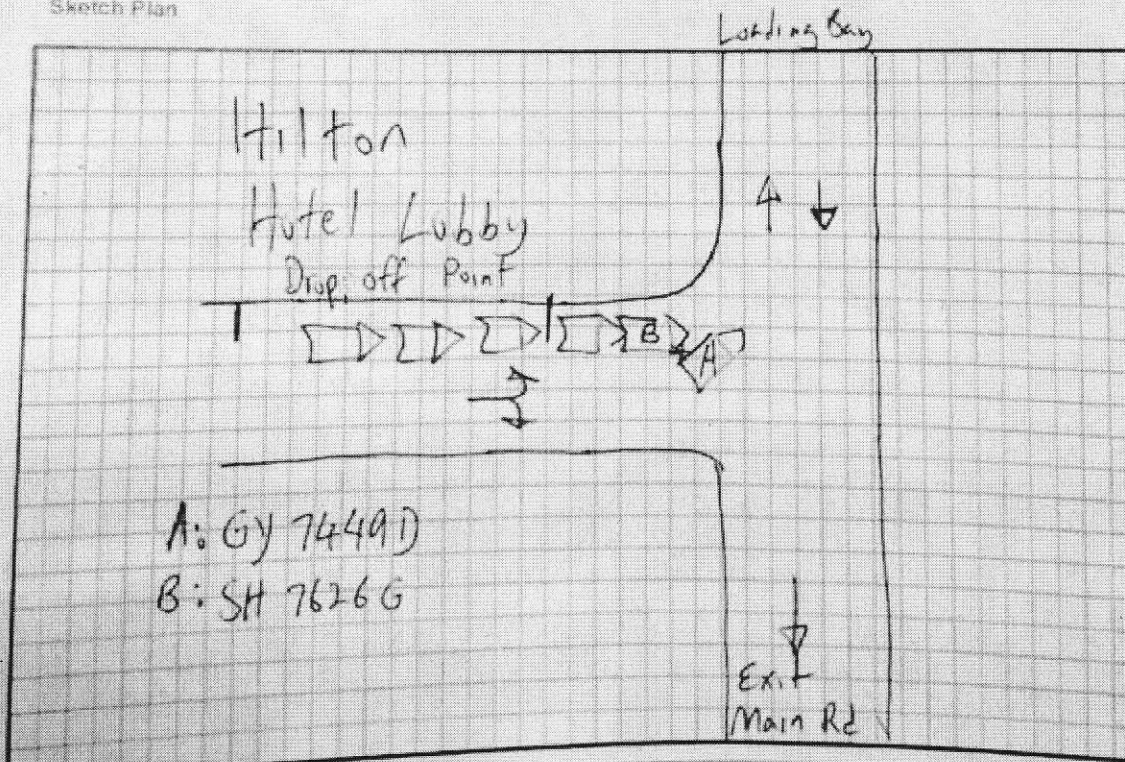 Sketch Plan
Loading Bay
Hilton
Hotel Lobby
Drop off Point
B
A
A: GY 7449D
B: SH 7626G
Exit
Main Rd